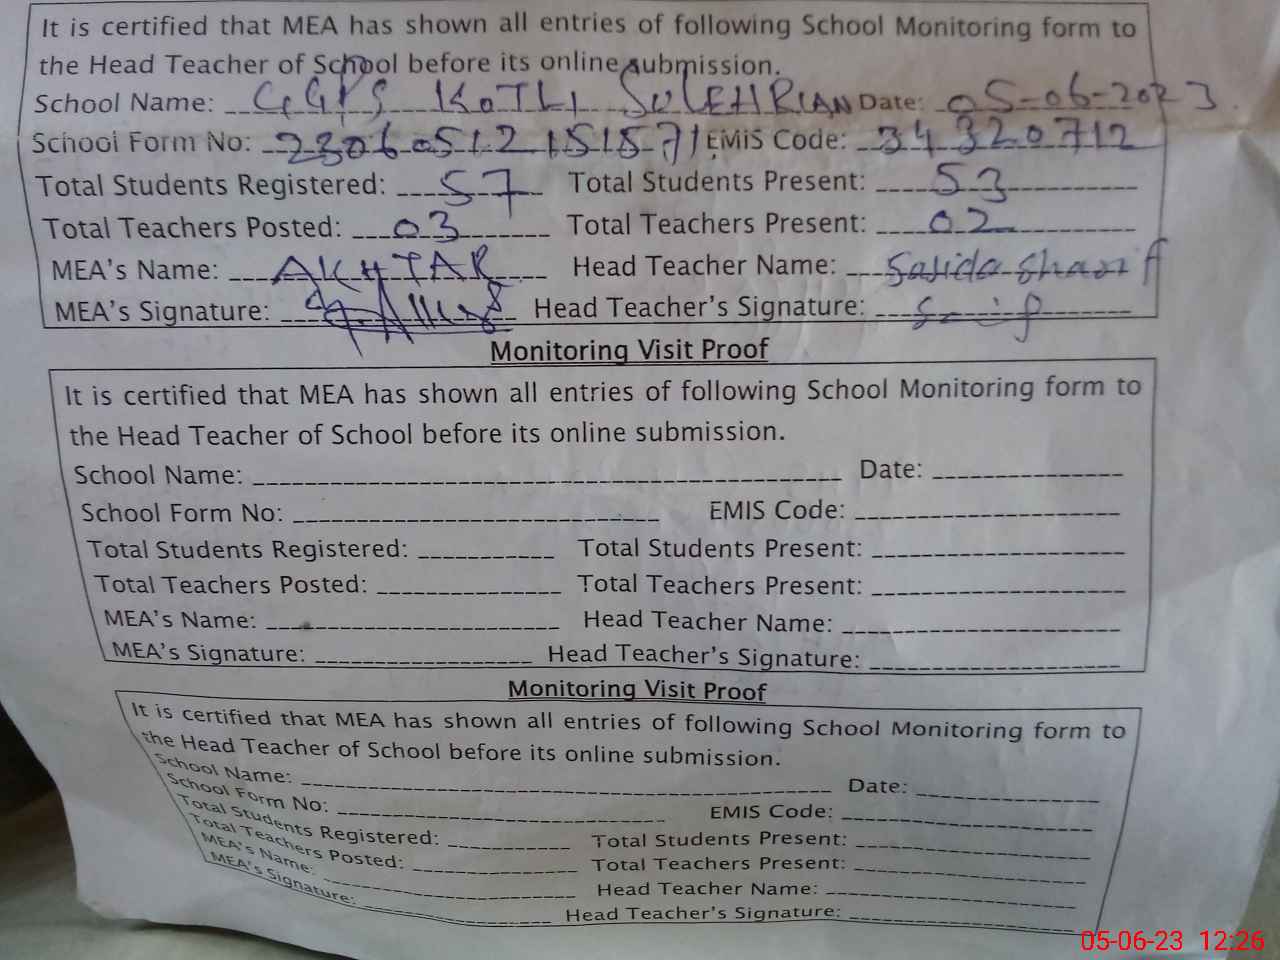 It is certified that MEA has shown all entries of following School Monitoring form to
the Head Teacher of School before its online submission.
School Name: GGPS KOTLI SULEHRIAN Date: 05-06-2023
School Form No: EMIS Code: 34320712
Total Students Registered: 57 Total Students Present: 53
Total Teachers Posted: 03 Total Teachers Present: 02
MEA's Name: AKHTAR Head Teacher Name: Sajida Sharif
MEA's Signature: Head Teacher's Signature:
Monitoring Visit Proof
It is certified that MEA has shown all entries of following School Monitoring form to
the Head Teacher of School before its online submission.
School Name: Date:
School Form No: EMIS Code:
Total Students Registered: Total Students Present:
Total Teachers Posted: Total Teachers Present:
MEA's Name: Head Teacher Name:
MEA's Signature: Head Teacher's Signature:
Monitoring Visit Proof
It is certified that MEA has shown all entries of following School Monitoring form to
the Head Teacher of School before its online submission.
School Name: Date:
School Form No: EMIS Code:
Total Students Registered: Total Students Present:
Total Teachers Posted: Total Teachers Present:
MEA's Name: Head Teacher Name:
MEA's Signature: Head Teacher's Signature:
05-06-23 12:26